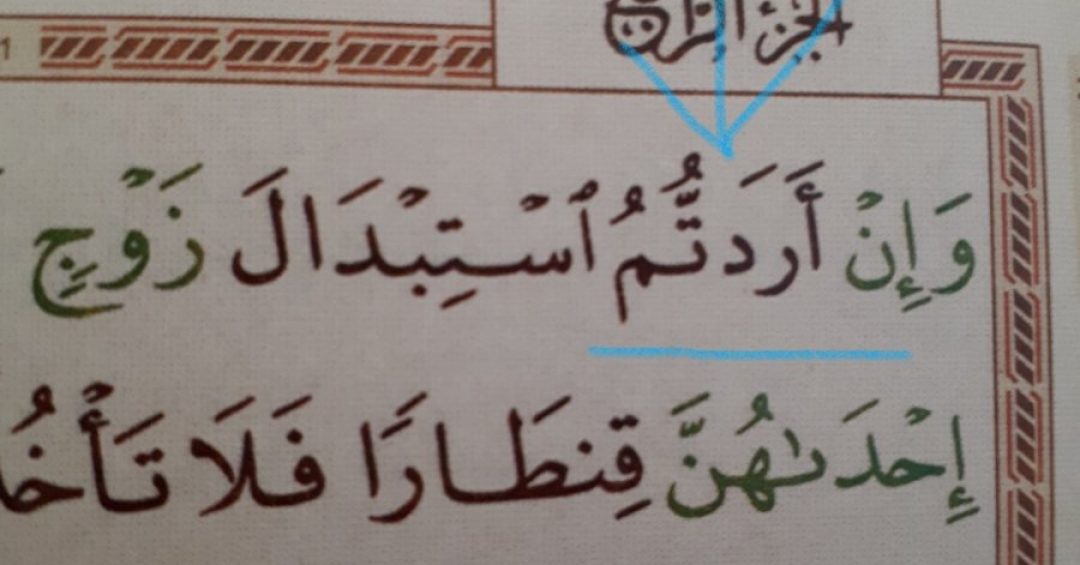 الجزء الرابع
وَإِنْ أَرَدتُّمُ ٱسْتِبْدَالَ زَوْجٍ
إِحْدَىٰهُنَّ قِنطَارًا فَلَا